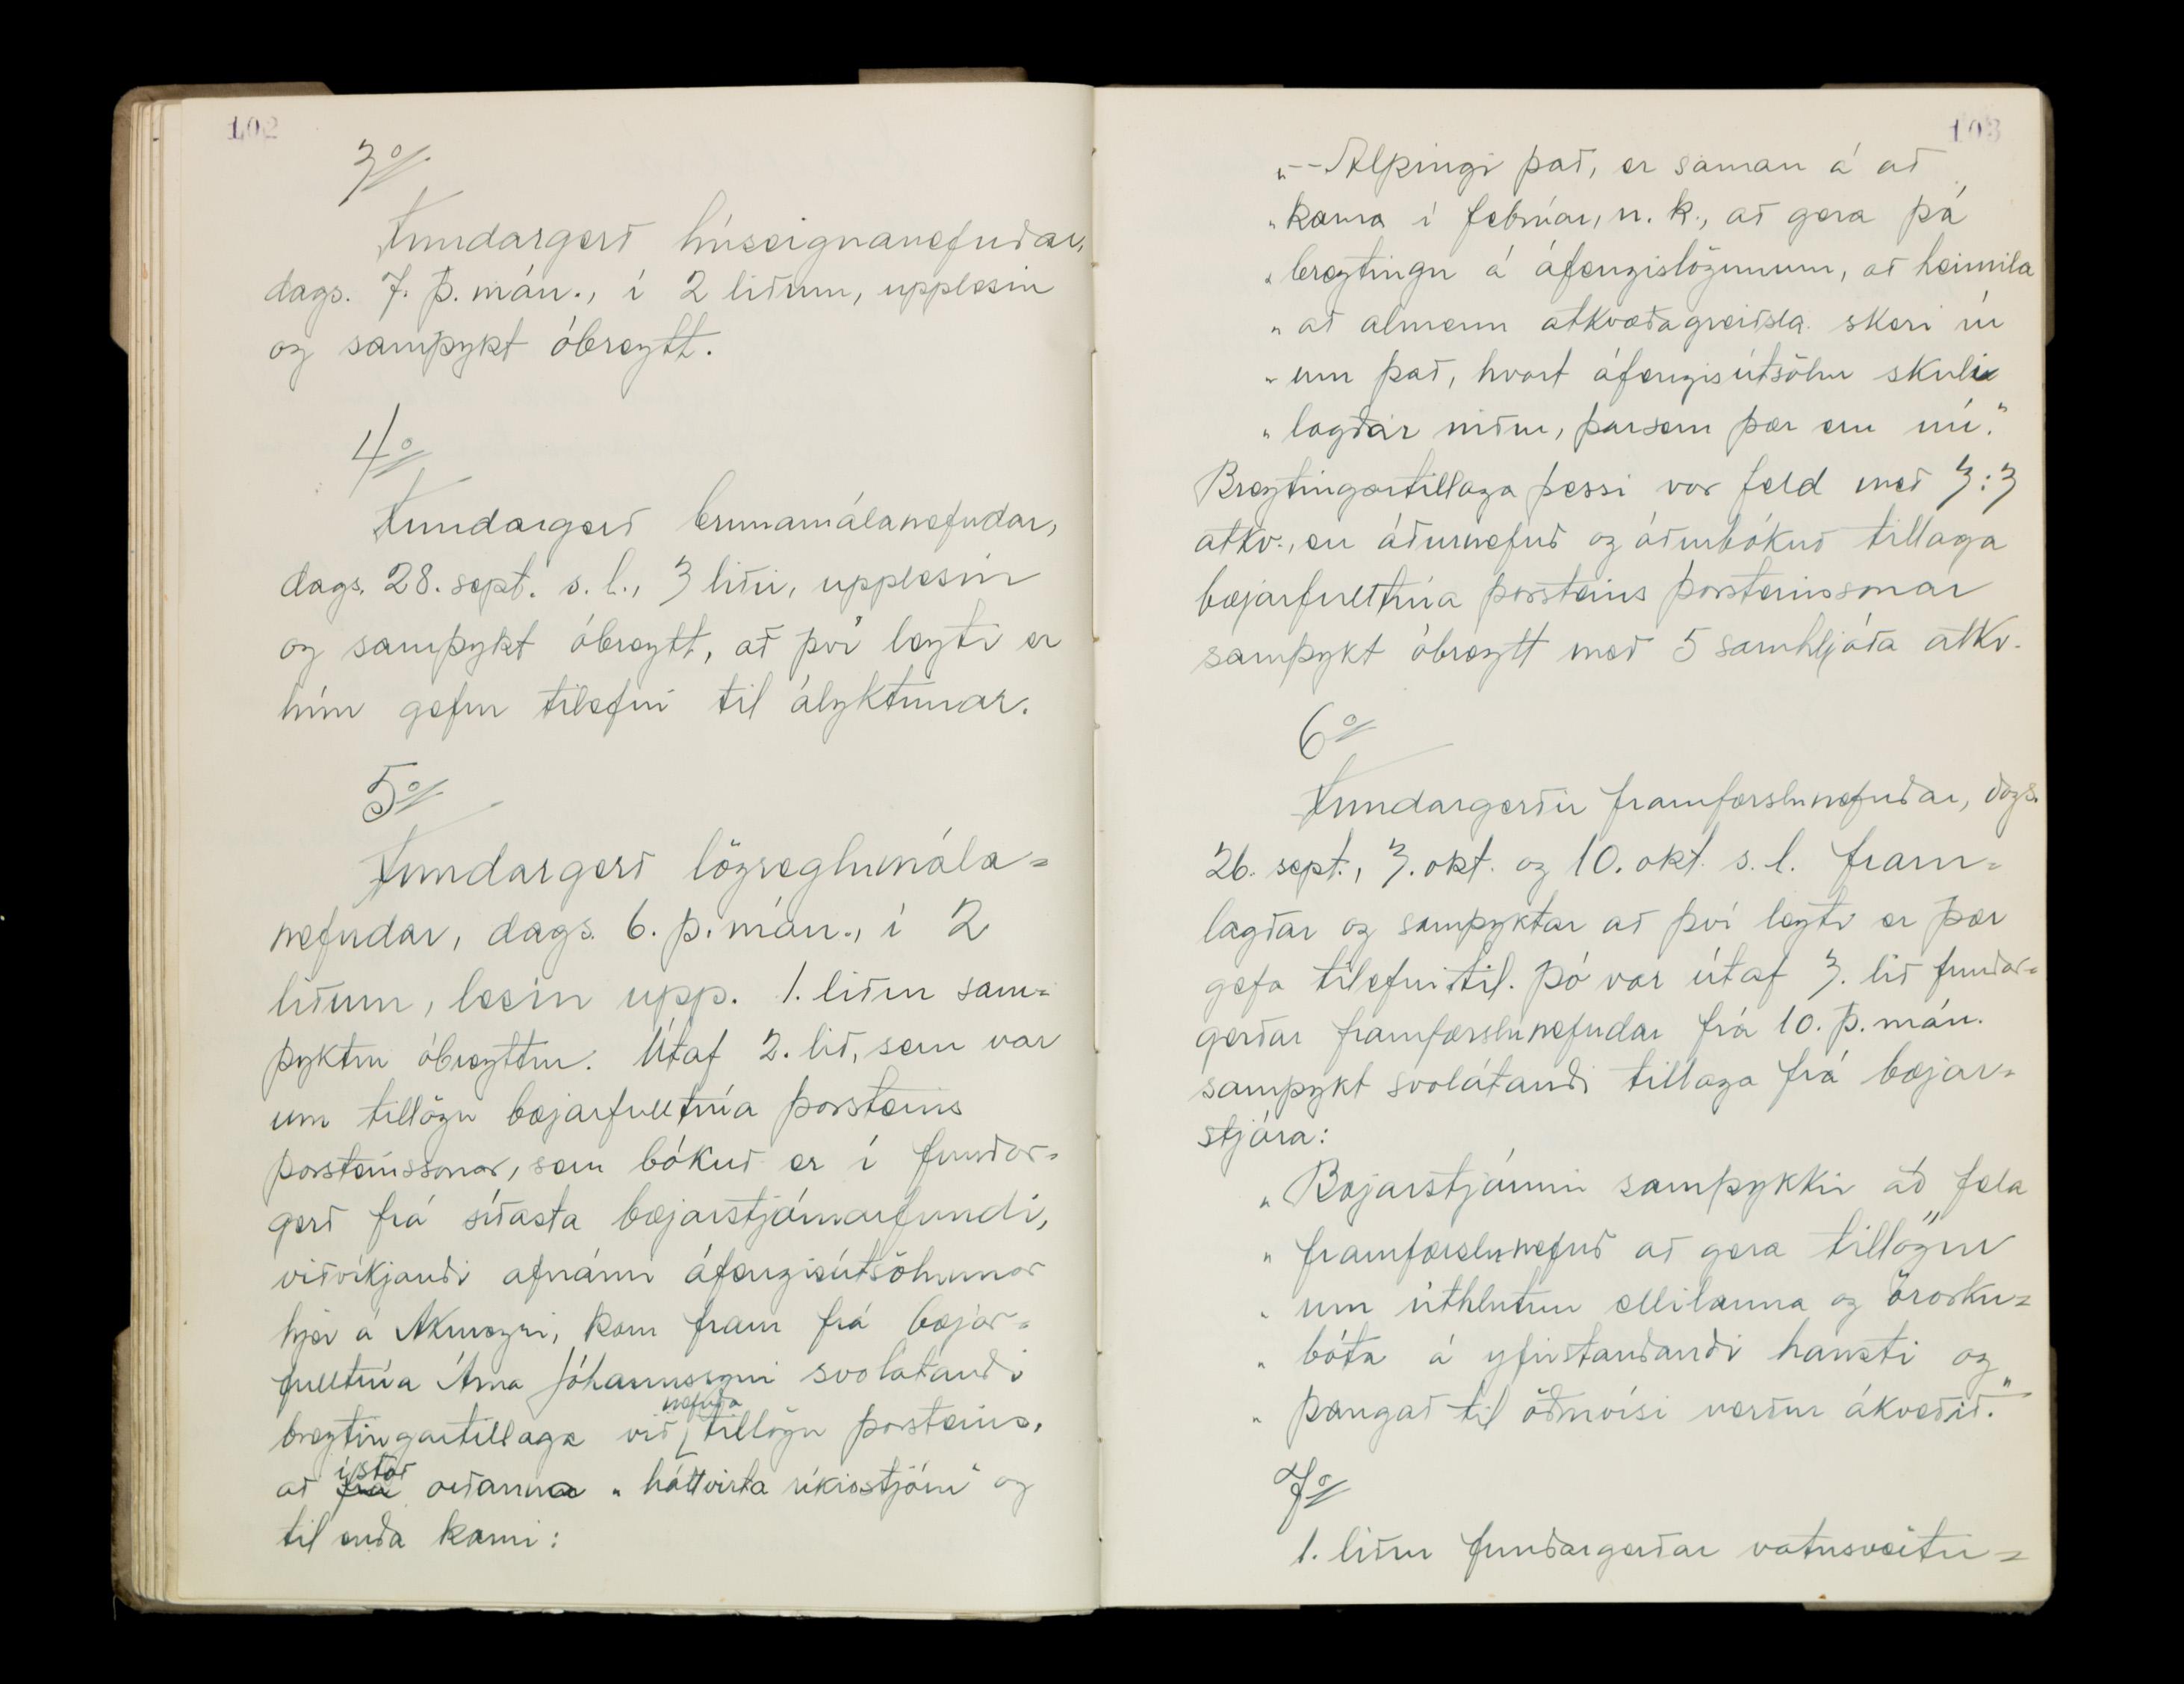 102
3º/
Fundargerð húseignanefndar,
dags. 7. þ. mán., í 2 liðum, upplesin
og samþykt óbreytt.
4º/
Fundargerð brunamálanefndar,
dags. 28. sept. s. l., 3 liðir, upplesin
og samþykt óbreytt, að því leyti er
hún gefur tilefni til ályktunar.
5º/
Fundargerð lögreglumála=
nefndar, dags. 6. þ. mán., í 2
liðum, lesin upp. 1. liður sam=
þyktur óbreyttur. Útaf 2. lið, sem var
um tillögu bæjarfulltrúa Þorsteins
Þorsteinssonar, sem bókuð er í fundar=
gerð frá síðasta bæjarstjórnarfundi,
viðvíkjandi afnámi áfengisútsölunnar
hjer á Akureyri, kom fram frá bæjar=
fulltrúa Árna Jóhannssyni svolátandi
breytingartillaga við nefnda tillögu Þorsteins,
að frá í stað orðanna „háttvirta ríkisstjórn" og
til enda komi:
103
„-- Alþingi það, er saman á að
„koma í febrúar, n. k., að gera þá
„breytingu á áfengislögunum, að heimila
„að almenn atkvæðagreiðsla skeri úr
„um það, hvort áfengisútsölur skuli
„lagðar niður, þarsem þær eru nú."
Breytingartillaga þessi var feld með 3:3
atkv., en áðurnefnd og áðurbókuð tillaga
bæjarfulltrúa Þorsteins Þorsteinssonar
samþykt óbreytt með 5 samhljóða atkv.
6º/
Fundargerðir framfærslunefndar, dags.
26. sept., 3. okt. og 10. okt. s. l. fram=
lagðar og samþyktar að því leyti er þær
gefa tilefni til. Þó var útaf 3. lið fundar=
gerðar framfærslunefndar frá 10. þ. mán.
samþykt svolátandi tillaga frá bæjar=
stjóra:
„Bæjarstjórnin samþykkir að fela
„framfærslunefnd að gera tillögur
„um úthlutun ellilauna og örorku=
„bóta á yfirstandandi hausti og
„þangað til öðruvísi verður ákveðið."
7º/
1. liður fundargerðar vatnsveitu=